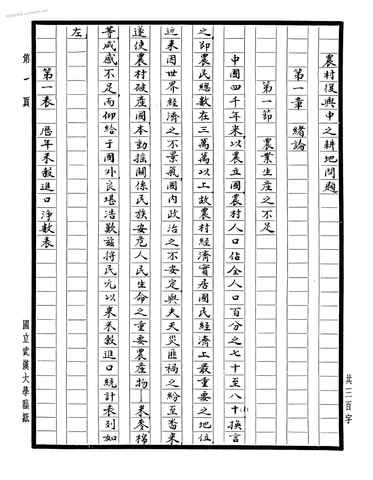 農村復興中之耕地問題
第一章 緒論
第一節 農業生產之不足
中國四千年來以農立國農村人口佔全人口百分之七十至八十換言
之即農民總數在三萬萬以上故農村經濟實居國民經濟上最重要之地位
近來因世界經濟之不景氣國內政治之不安定與夫天災匪禍之紛至沓來
遂使農村破產國本動搖關係民族安危人民生命之重要農產物—米麥棉
等咸感不足而仰給于國外良堪浩歎茲將民元以來米穀進口統計表列如
左
第一表 歷年米穀進口淨數表
第一頁
國立武漢大學稿紙
共三百字